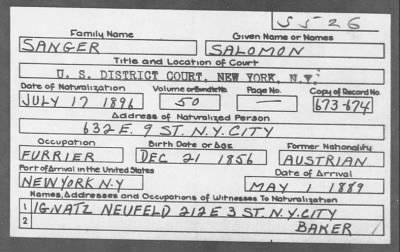 S526
Family Name Given Name or Names
SANGER SALOMON
Title and Location of Court
U. S. DISTRICT COURT, NEW YORK, N.Y.
Date of Naturalization Volume or Bundle No. Page No. Copy of Record No.
JULY 17 1896 50 — 673-674
Address of Naturalized Person
632 E. 9 ST. N.Y. CITY
Occupation Birth Date or Age Former Nationality
FURRIER DEC 21 1856 AUSTRIAN
Port of Arrival in the United States Date of Arrival
NEW YORK N.Y MAY 1 1889
Names, Addresses and Occupations of Witnesses To Naturalization
1 IGNATZ NEUFELD 212 E 3 ST. N.Y. CITY
2 BAKER